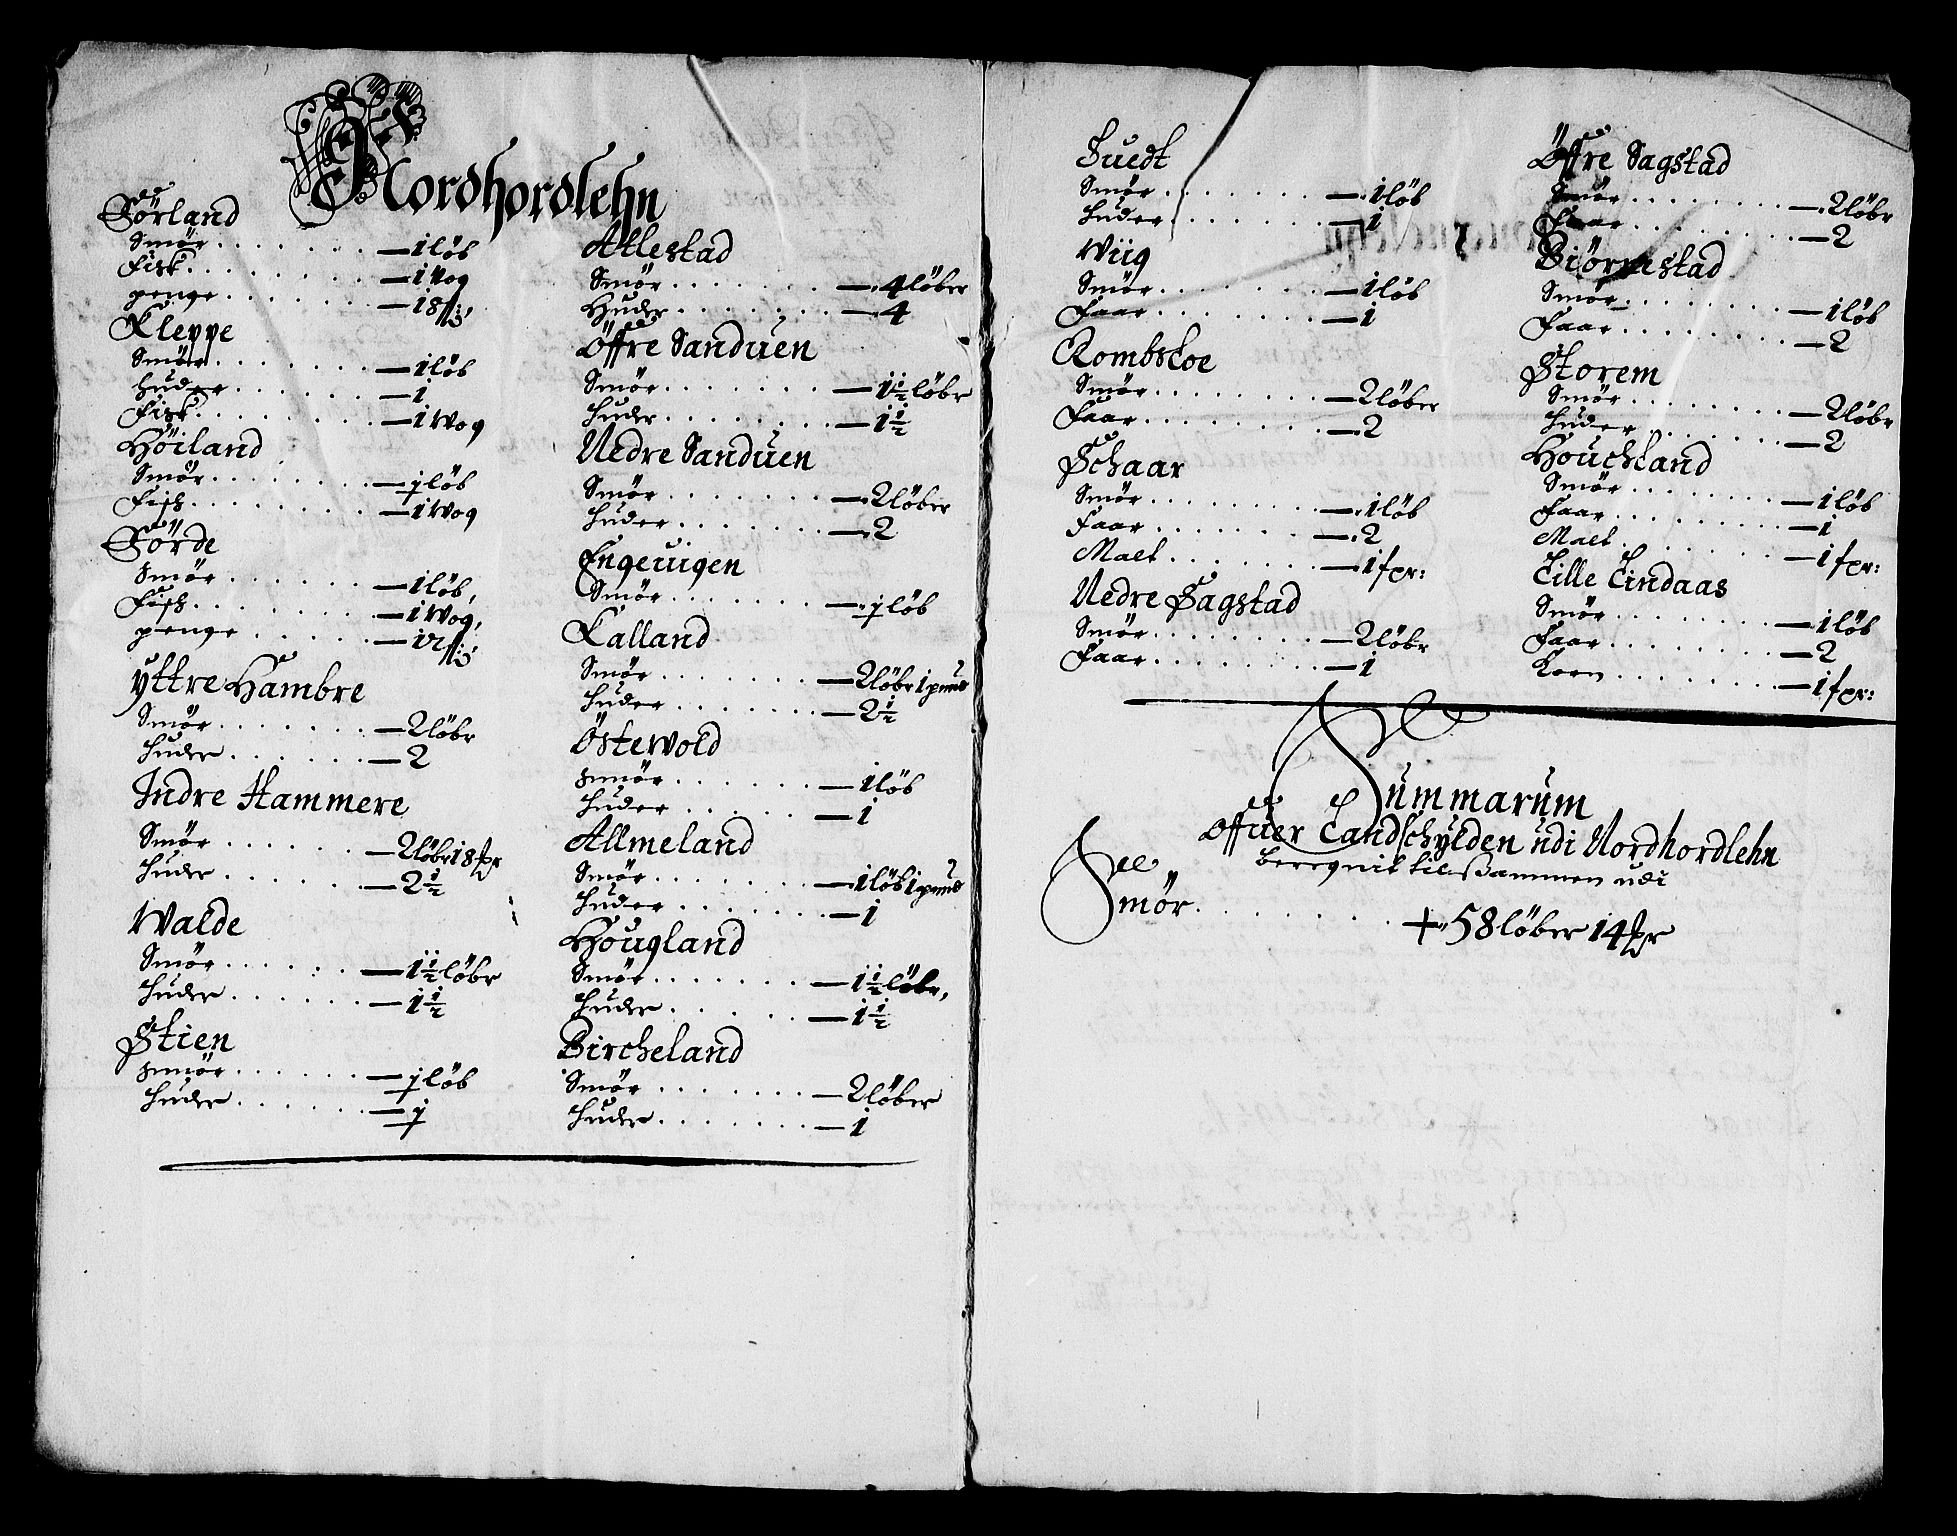 Nordhordlehn
Förland
Smör . . . . . . . — 1 löb
Fisk . . . . . . . — 1 Vog
penge . . . . . . . — 18 ß
Kleppe
Smör . . . . . . . — 1 löb
huder . . . . . . . — 1
Fisk . . . . . . . — 1 Wog
Höiland
Smör . . . . . . . — j löb
Fisch . . . . . . . — 1 Wog
Förde
Smör . . . . . . . — 1 löb,
Fisch . . . . . . . — 1 Wog,
penge . . . . . . . — 12 ß
yttre Hambre
Smör . . . . . . . — 2 löbr
Huder . . . . . . . — 2
Indre Hammere
Smör . . . . . . . — 2 löbr 18
Huder . . . . . . . — 2 1/2
Walde
Smör . . . . . . . — 1 1/2 löbr
Huder . . . . . . . — 1 1/2
Stien
Smör . . . . . . . — j löb
Huder . . . . . . . — j
Atlestad
Smör . . . . . . . — 4 löber
Huder . . . . . . . — 4
Öffre Sanduen
Smör . . . . . . . — 1 1/2 löbr
Huder . . . . . . . — 1 1/2
Nedre Sanduen
Smör . . . . . . . — 2 löber
Huder . . . . . . . — 2
Engeuigen
Smör . . . . . . . — j löb
Kalland
Smör . . . . . . . — 2 löbr 1 pund
Huder . . . . . . . — 2 1/2
Östewold
Smör . . . . . . . — 1 löb
Huder . . . . . . . — 1
Allmeland
Smör . . . . . . . — 1 löb 1 pund
Huder . . . . . . . — 1
Hougland
Smör . . . . . . . — 1 1/2 löbr,
Huder . . . . . . . — 1 1/2
Bircheland
Smör . . . . . . . — 2 löber
Huder . . . . . . . — 1
Huedt
Smör . . . . . . . — 1 löb
Huder . . . . . . . — 1
Wiig
Smör . . . . . . . — 1 löb
Faar . . . . . . . — 1
Rombskoe
Smör . . . . . . . — 2 löber
Faar . . . . . . . — 2
Schaar
Smör . . . . . . . — 1 löb
Faar . . . . . . . — 2
Malt . . . . . . . — 1
Nedre Sagstad
Smör . . . . . . . — 2 löbr
Faar . . . . . . . — 1
Öffre Sagstad
Smör . . . . . . . — 2 löbr
Faar . . . . . . . — 2
Biörnestad
Smör . . . . . . . — 1 löb
Faar . . . . . . . — 2
Storem
Smör . . . . . . . — 2 löbr
Huder . . . . . . . — 2
Houchland
Smör . . . . . . . — 1 löb
Faar . . . . . . . — 1
Malt . . . . . . . — 1
Lille Lindaas
Smör . . . . . . . — 1 löb
Faar . . . . . . . — 2
Korn . . . . . . . — 1
Summarum
Offuer Landschylden udi Nordhordlehn
beregnit tilsammen udi
Smör . . . . . . . 58 löber 14